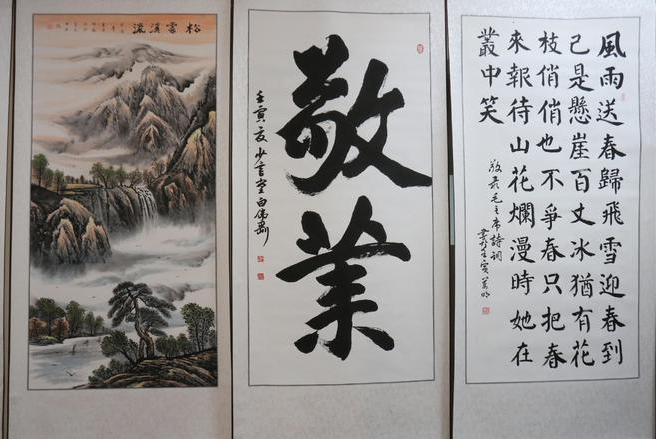 風雨送春歸飛雪迎春到
已是懸崖百丈冰猶有花
枝俏俏也不爭春只把春
來報待山花爛漫時她在
叢中笑
敬录毛主席詩詞
書於壬寅
敬業
壬寅夏少言堂白偉
松雲溪